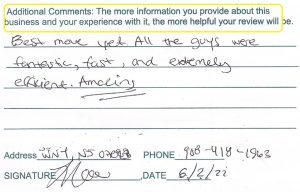 Additional Comments: The more information you provide about this
business and your experience with it, the more helpful your review will be.
Best move yet. All the guys were
fantastic, fast, and extremely
efficient. Amazing
Address WNY, NJ PHONE 908-418-1963
SIGNATURE ,DATE 6/2/22